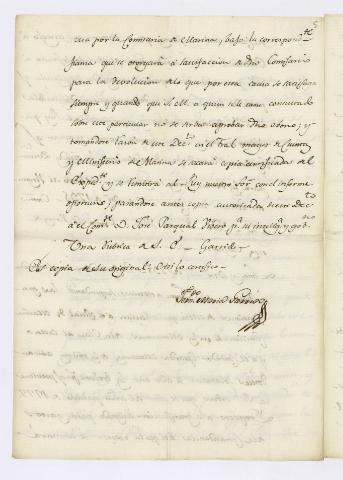 por la Comisaria de Marina, bajo la correspond.te
fianza que se otorgará á satisfaccion de dho Comisario
para la devolucion de lo que por esta causa se satisfaga
siempre y quando que S. M. á quien se le tiene consultado
sobre este particular no se sirva aprobar dho abono; y
tomandose razon de este Dec.to en el Tral mayor de Cuentas
y el Ministerio de Marina se sacará copia certificada del
Exped.te y se remitirá al Rey nuestro Sor. con el informe
oportuno; pasandose antes copia autorizada de este dec.to
á el D. José Pasqual Vivero p.a su intelig.a y gob.no
Una rubrica de S. E. Garrido
Es copia de su original de q.e certifico
Maria